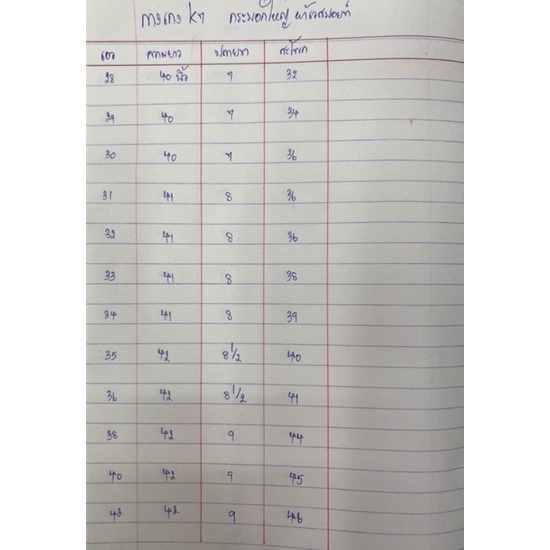 กางเกง กระบอกใหญ่
เอว ความยาว ปลายขา สะโพก
28 40 นิ้ว 7 32
29 40 7 34
30 40 7 36
31 41 8 36
32 41 8 36
33 41 8 38
34 41 8 39
35 42 8 1/2 40
36 42 8 1/2 41
38 42 9 44
40 42 9 45
43 42 9 46